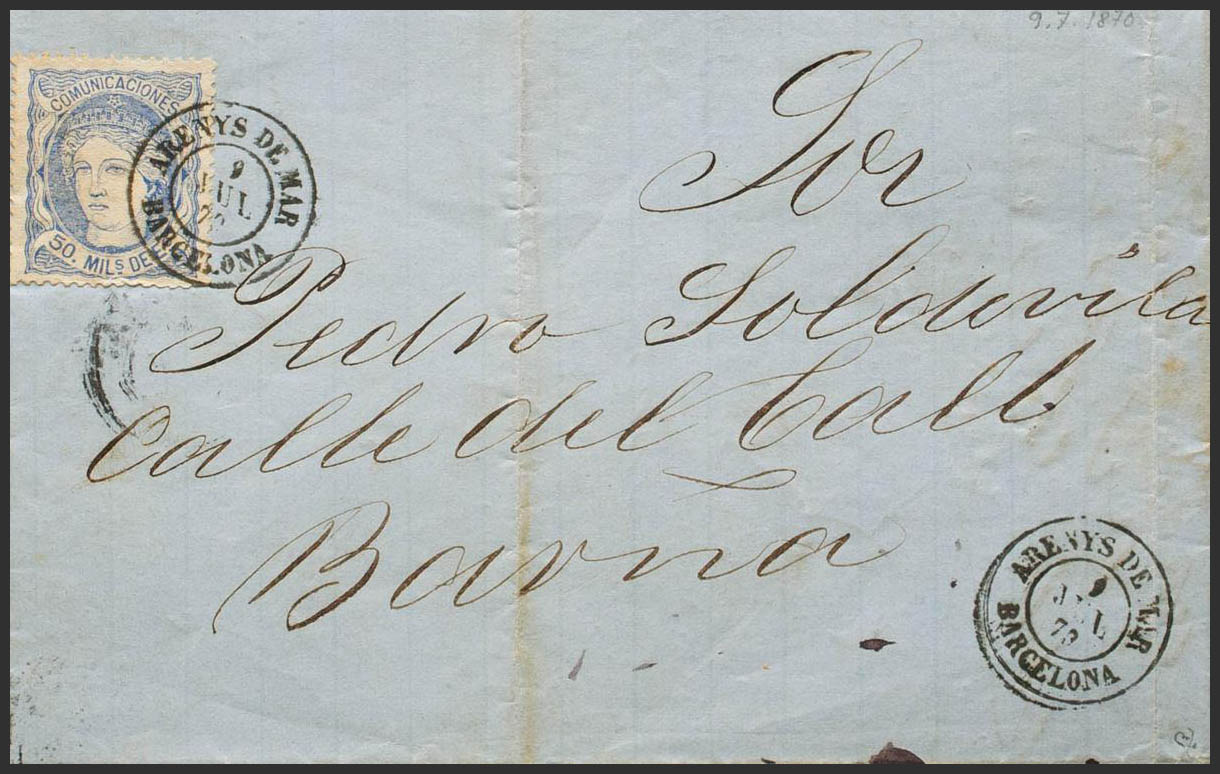 9.7.1870
COMUNICACIONES
50. MILS DE
ARENYS DE MAR
9
JUL
BARCELONA
Sor
Pedro Soldevila
Calle del Call
Barña
ARENYS DE MAR
9
JUL
BARCELONA